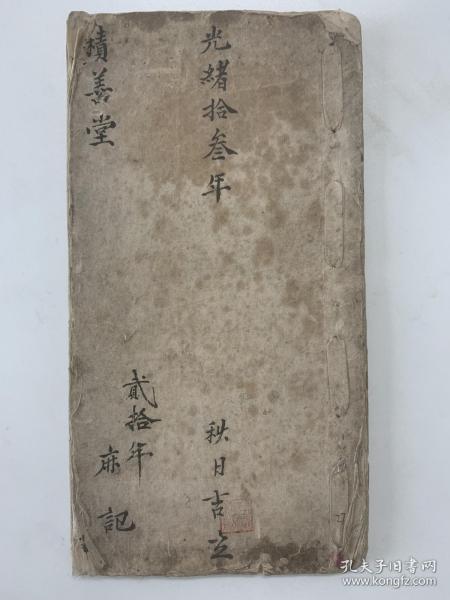 光緒拾叁年
秋日吉立
貳拾年
積善堂
麻記
孔夫子旧书网
www.kongfz.com